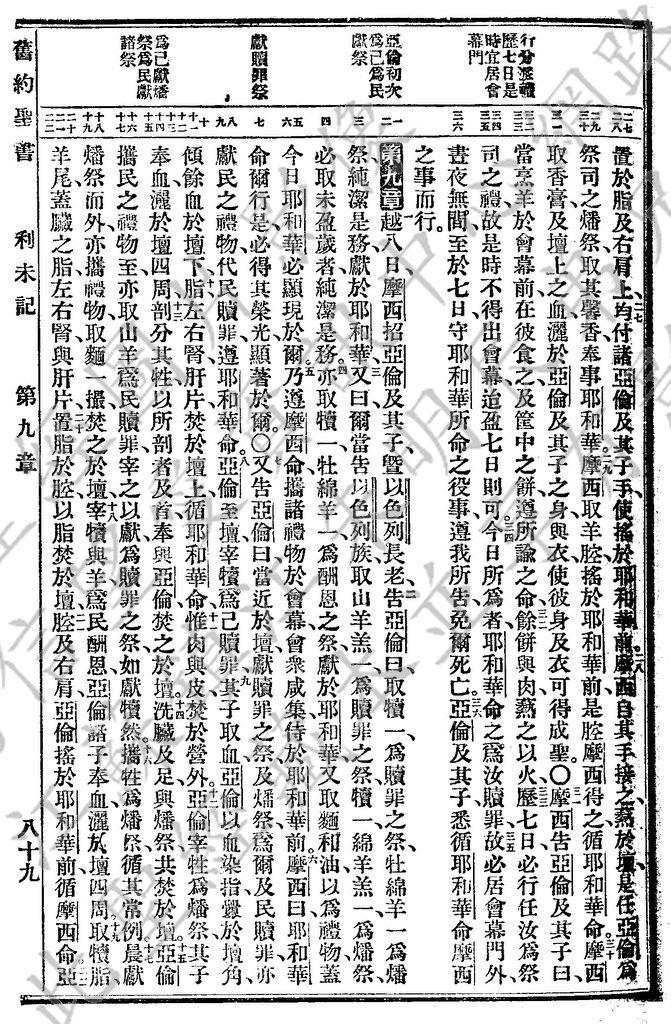 行分派禮
歷七日是
時宜居會
幕門
亞倫初次
爲己爲民
獻祭
獻贖罪祭
爲己獻燔
祭爲民獻
諸祭
置於脂及右肩上均付諸亞倫及其子手使搖於耶和華前摩西自其手接之爇於壇是任亞倫爲
祭司之燔祭取其馨香奉事耶和華摩西取羊腔搖於耶和華前是腔摩西得之循耶和華命摩西
取香膏及壇上之血灑於亞倫及其子之身與衣使彼身及衣可得成聖○摩西告亞倫及其子曰
當烹羊於會幕前在彼食之及筐中之餠遵所諭之命餘餠與肉爇之以火歷七日必行任汝爲祭
司之禮故是時不得出會幕迨盈七日則可今日所爲者耶和華命之爲汝贖罪故必居會幕門外
晝夜無間至於七日守耶和華所命之役事遵我所告免爾死亡亞倫及其子悉循耶和華命摩西
之事而行
第九章越八日摩西招亞倫及其子曁以色列長老告亞倫曰取犢一爲贖罪之祭牡綿羊一爲燔
祭純潔是務獻於耶和華又曰爾當告以色列族取山羊羔一爲贖罪之祭犢一綿羊羔一爲燔祭
必取未盈歲者純潔是務亦取犢一牡綿羊一爲酬恩之祭獻於耶和華又取麵和油以爲禮物蓋
今日耶和華必顯現於爾乃遵摩西命攜諸禮物於會幕會衆咸集侍於耶和華前摩西曰耶和華
命爾行是必得其榮光顯著於爾○又告亞倫曰當近於壇獻贖罪之祭及燔祭爲爾及民贖罪亦
獻民之禮物代民贖罪遵耶和華命亞倫至壇宰犢爲己贖罪其子取血亞倫以血染指釁於壇角
傾餘血於壇下脂左右腎肝片焚於壇上循耶和華命惟肉與皮焚於營外亞倫宰牲爲燔祭其子
奉血灑於壇四周剖分其牲以所剖者及首奉與亞倫焚之於壇洗臟及足與燔祭共焚於壇亞倫
攜民之禮物至亦取山羊爲民贖罪宰之以獻爲贖罪之祭如獻犢然攜牲爲燔祭循其常例晨獻
燔祭而外亦攜禮物取麵一撮焚之於壇宰犢與羊爲民酬恩亞倫諸子奉血灑於壇四周取犢脂
羊尾蓋臟之脂左右腎與肝片置脂於腔以脂焚於壇腔及右肩亞倫搖於耶和華前循摩西命
舊約聖書　利未記　第九章　八十九